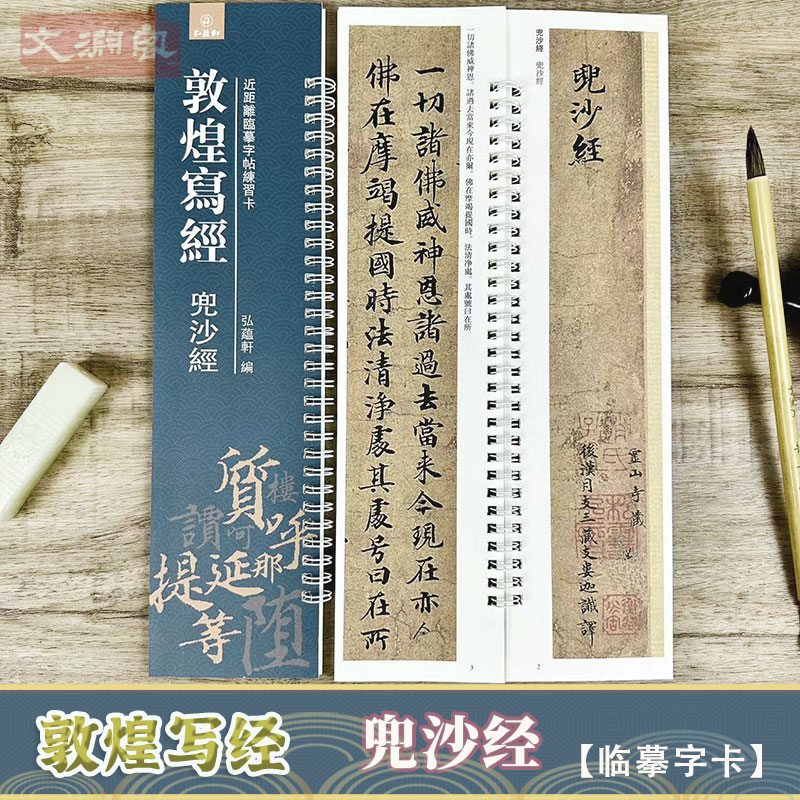 文渊阁
弘蕴軒
近距離臨摹字帖練習卡
敦煌寫經
兜沙經
弘蘊軒 編
質
樓
讀
呵
呼
那
延
提
等
堕
一切諸佛威神恩。諸過去當來今現在亦爾。佛在摩竭提國時。法清净處。其處號曰在所
一切諸佛威神恩諸過去當来今現在亦尒
佛在摩竭提國時法清淨處其處号曰在所
3
兜沙經 兜沙經
兜沙經
靈山寺藏
後漢月支三藏支婁迦讖譯
2
敦煌写经
兜沙经
【临摹字卡】